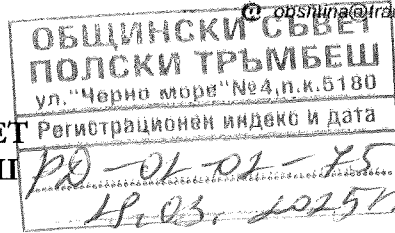 @ obshtina@tra
ОБЩИНСКИ СЪВЕТ
ПОЛСКИ ТРЪМБЕШ
ул."Черно море"№4,п.к.5180
ЕТ Регистрационен индекс и дата
Ш РД-01-02-75
28.03.2025г